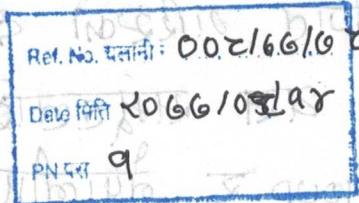 Ref. No. चलानी: ००८/७७/७८
Date मिति २०७७/०३/१४
PN दस १